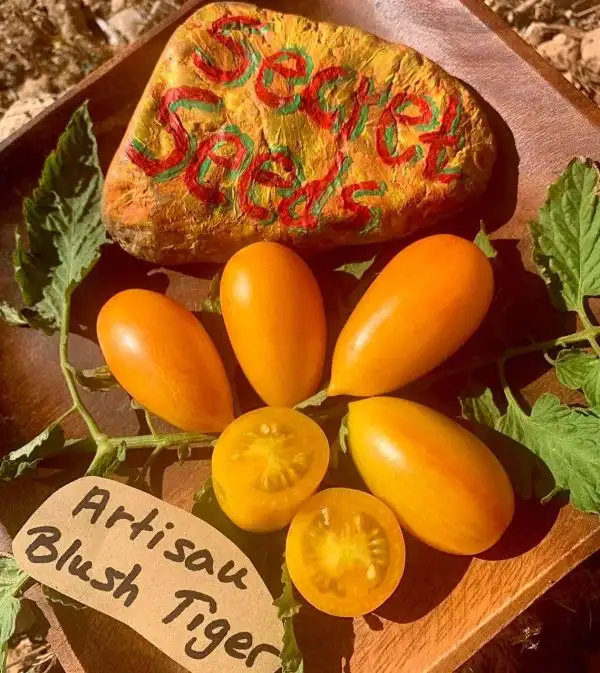 Secret
Seeds
Artisan
Blush Tiger